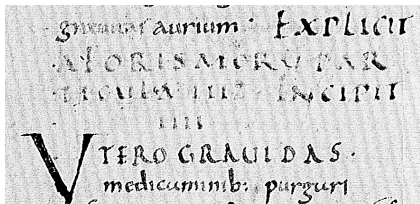 aurium· EXPLICIT
AFORISMORU PAR
TICULA III· INCIPIT
IIII
UTERO GRAUIDAS·
medicuminib: purguri